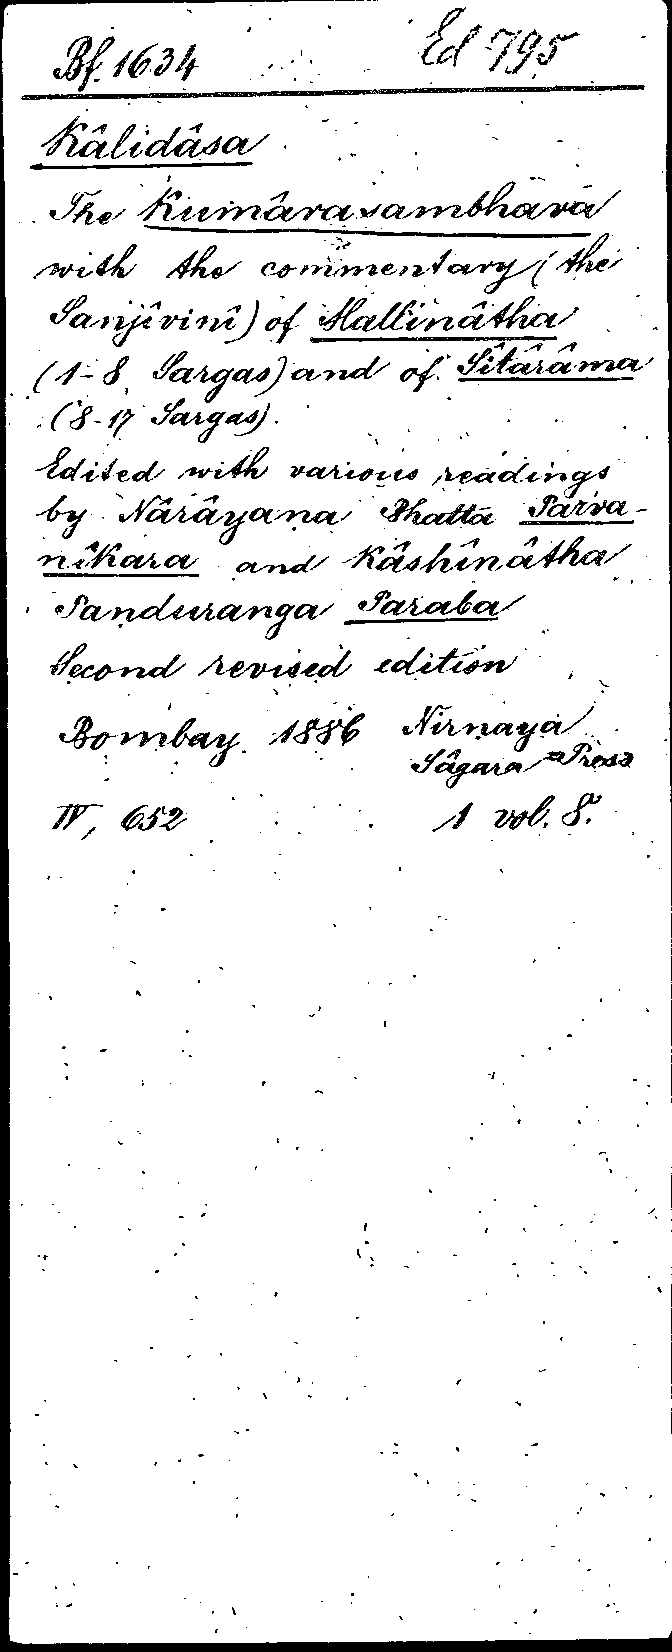 Bf. 1634 Ed 795
Kâlidâsa
The Kumârasambhava
with the commentary (the
Sanjîvinî) of Mallinâtha
(1-8 Sargas) and of Sîtârâma
(8-17 Sargas).
Edited with various readings
by Nârâyana Bhatta Parva-
nîkara and Kâshînâtha
Panduranga Paraba
Second revised edition
Bombay 1886 Nirnaya
Sâgara=Press
IV, 652 1 vol. 8°.